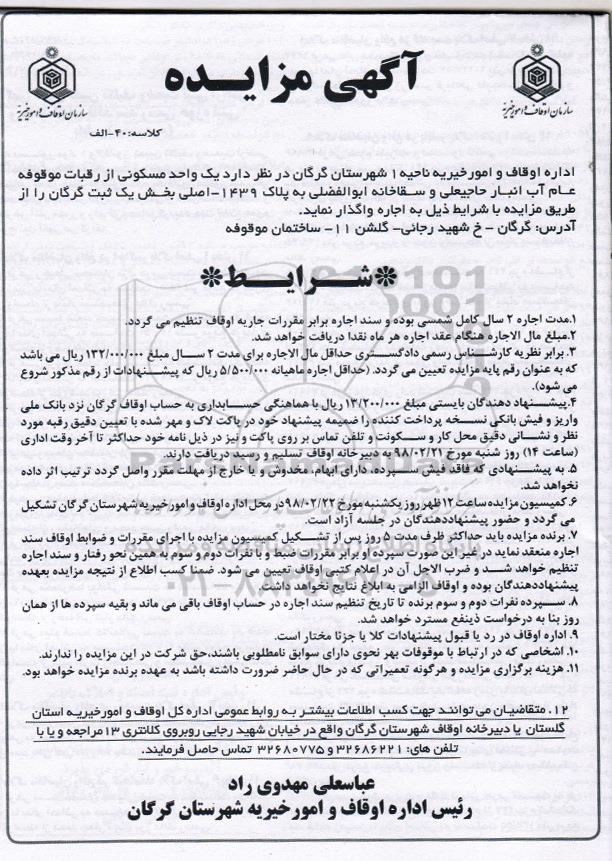 آگهی مزایده
سازمان اوقاف و امور خیریه
سازمان اوقاف و امور خیریه
کلاسه: ۴۰-الف
اداره اوقاف و امورخیریه ناحیه ۱ شهرستان گرگان در نظر دارد یک واحد مسکونی از رقبات موقوفه
عام آب انبار حاجیعلی و سقاخانه ابوالفضلی به پلاک ۱۴۳۹-اصلی بخش یک ثبت گرگان را از
طریق مزایده با شرایط ذیل به اجاره واگذار نماید.
آدرس: گرگان - خ شهید رجائی- گلشن ۱۱- ساختمان موقوفه
*شرایط*
۱.مدت اجاره ۲ سال کامل شمسی بوده و سند اجاره برابر مقررات جاریه اوقاف تنظیم می گردد.
۲.مبلغ مال الاجاره هنگام عقد اجاره هر ماه نقدا دریافت خواهد شد.
۳. برابر نظریه کارشناس رسمی دادگستری حداقل مال الاجاره برای مدت ۲ سال مبلغ ۱۳۲/۰۰۰/۰۰۰ ریال می باشد
که به عنوان رقم پایه مزایده تعیین می گردد. (حداقل اجاره ماهیانه ۵/۵۰۰/۰۰۰ ریال که پیشنهادات از رقم مذکور شروع
می شود)
۴.پیشنهاد دهندگان بایستی مبلغ ۱۳/۲۰۰/۰۰۰ ریال با هماهنگی حسابداری به حساب اوقاف گرگان نزد بانک ملی
واریز و فیش بانکی نسخه پرداخت کننده را ضمیمه پیشنهاد خود در پاکت لاک و مهر شده با تعیین دقیق رقبه مورد
نظر و نشانی دقیق محل کار و سکونت و تلفن تماس بر روی پاکت و نیز در ذیل نامه خود حداکثر تا آخر وقت اداری
(ساعت ۱۴) روز شنبه مورخ ۹۸/۰۲/۲۱ به دبیرخانه اوقاف تسلیم و رسید دریافت دارند.
۵. به پیشنهادی که فاقد فیش سپرده، دارای ابهام، مخدوش و یا خارج از مهلت مقرر واصل گردد ترتیب اثر داده
نخواهد شد.
۶.کمیسیون مزایده ساعت ۱۲ ظهر روز یکشنبه مورخ ۹۸/۰۲/۲۲ در محل اداره اوقاف و امور خیریه شهرستان گرگان تشکیل
می گردد و حضور پیشنهاددهندگان در جلسه آزاد است.
۷. برنده مزایده باید حداکثر ظرف مدت ۵ روز پس از تشکیل کمیسیون مزایده با اجرای مقررات و ضوابط اوقاف سند
اجاره منعقد نماید در غیر این صورت سپرده او برابر مقررات ضبط و با نفرات دوم و سوم به همین نحو رفتار و سند اجاره
تنظیم خواهد شد و ضرب الاجل آن در اعلام کتبی اوقاف تعیین می شود. ضمنا کسب اطلاع از نتیجه مزایده بعهده
پیشنهاددهندگان بوده و اوقاف الزامی به ابلاغ نتایج نخواهد داشت.
۸. سپرده نفرات دوم و سوم برنده تا تاریخ تنظیم سند اجاره در حساب اوقاف باقی می ماند و بقیه سپرده ها از همان
روز بنا به درخواست ذینفع مسترد خواهد شد.
۹. اداره اوقاف در رد یا قبول پیشنهادات کلا یا جزئا مختار است.
۱۰. اشخاصی که در ارتباط با موقوفات بهر نحوی دارای سوابق نامطلوبی باشند،حق شرکت در این مزایده را ندارند.
۱۱. هزینه برگزاری مزایده و هرگونه تعمیراتی که در حال حاضر ضرورت داشته باشد به عهده برنده مزایده خواهد بود.
۱۲. متقاضیان می توانند جهت کسب اطلاعات بیشتر به روابط عمومی اداره کل اوقاف و امور خیریه استان
گلستان یا دبیرخانه اوقاف شهرستان گرگان واقع در خیابان شهید رجایی روبروی کلانتری ۱۳ مراجعه و یا با
تلفن های: ۳۲۶۸۶۲۲۱ و ۳۲۶۸۰۷۷۵ تماس حاصل فرمایند.
عباسعلی مهدوی راد
رئیس اداره اوقاف و امور خیریه شهرستان گرگان